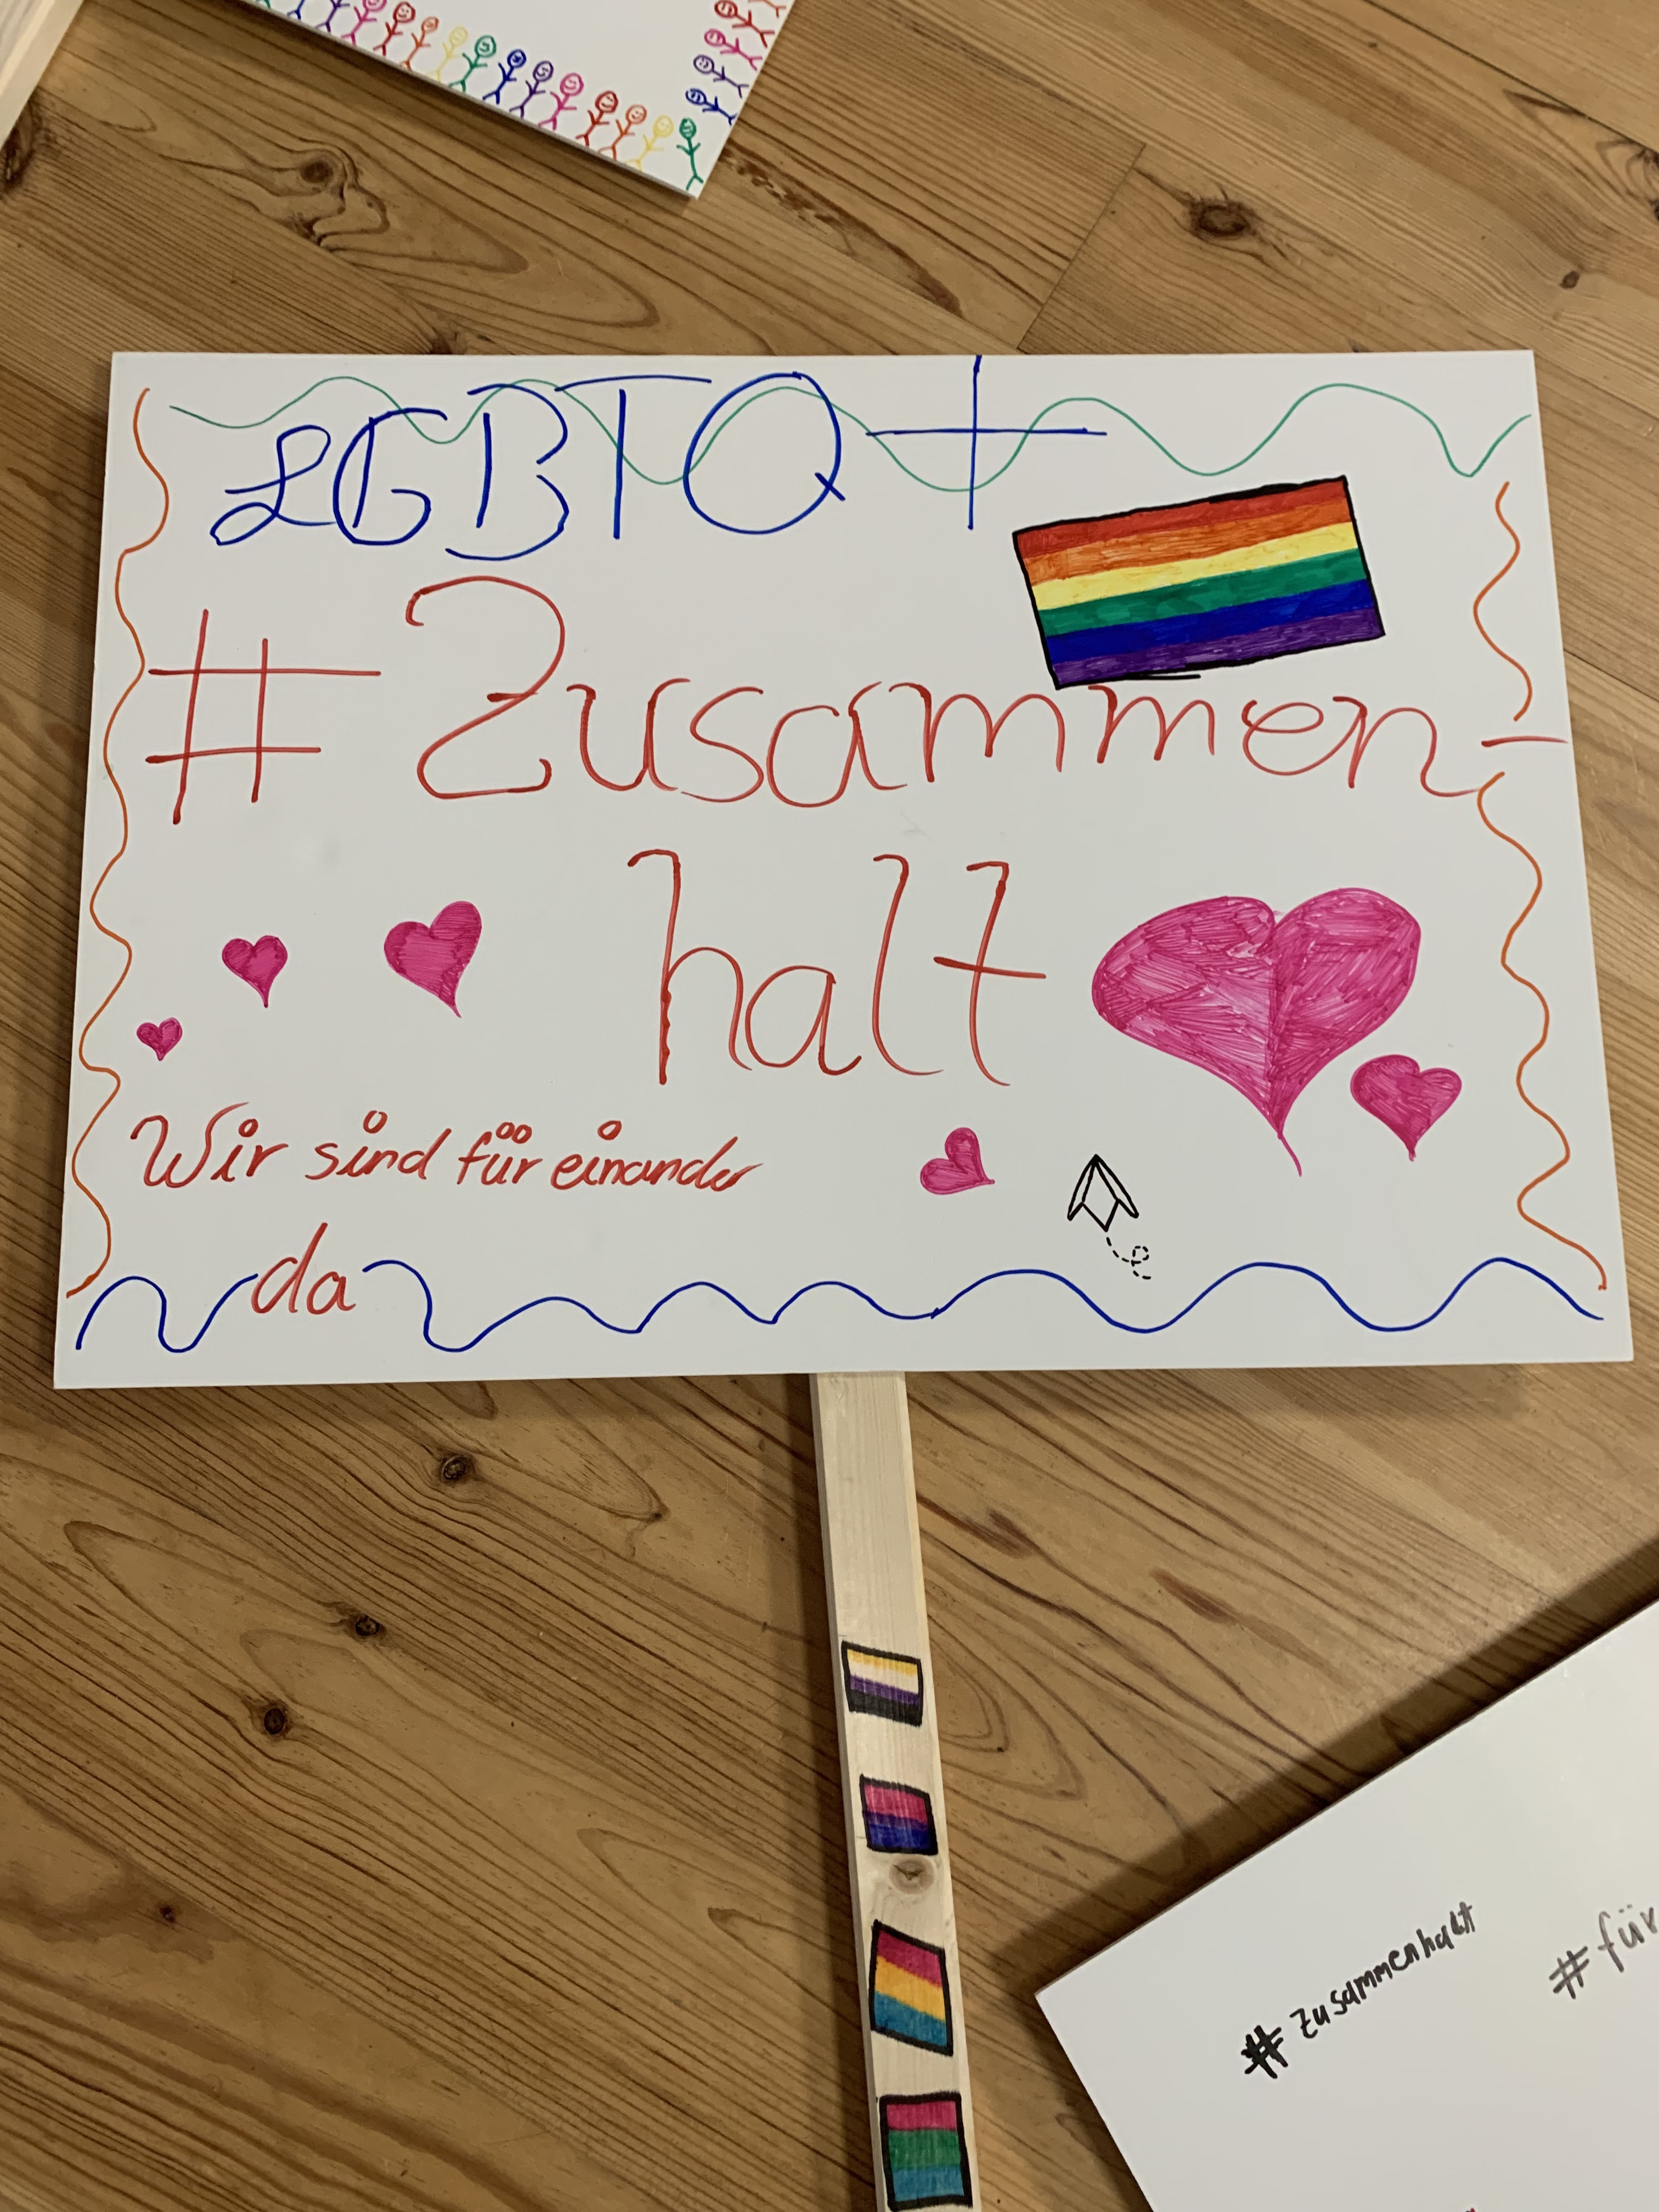 LGBTQ+
#Zusammen-
halt
Wir sind für einander
da
#zusammenhalt
#für